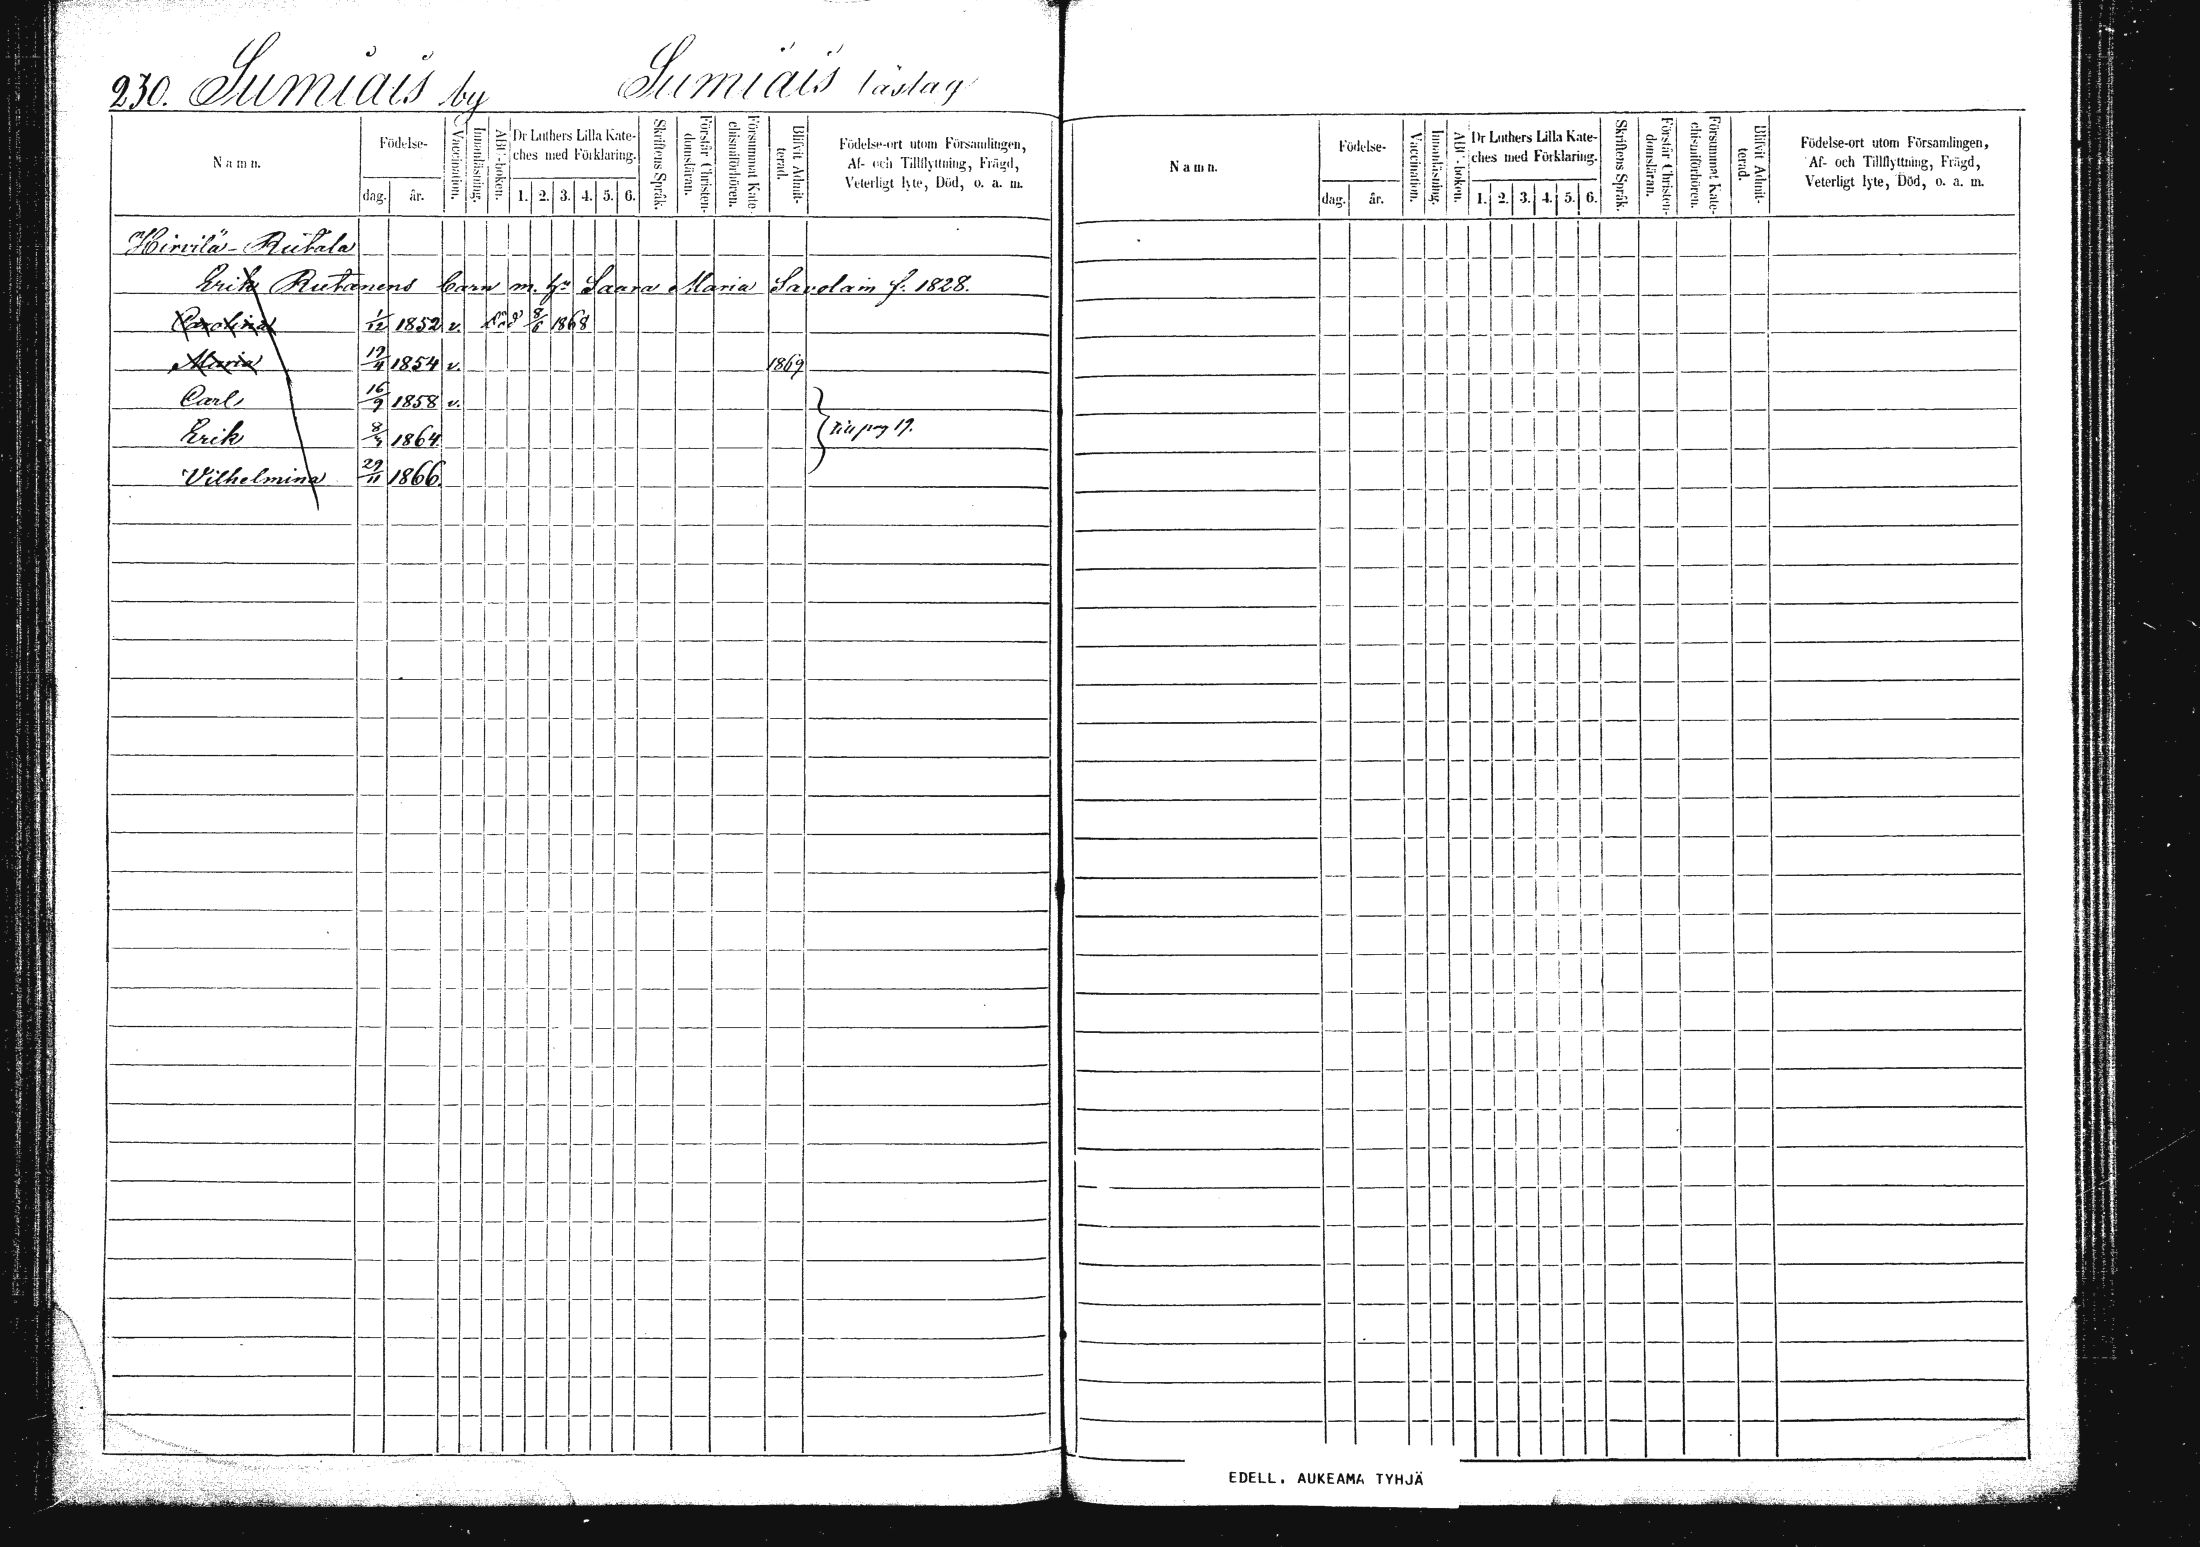 230. Sumiais by Sumiais läslag
Namn.
Födelse-
dag. år.
Vaccination.
Innanläsning.
ABC-boken.
Dr Luthers Lilla Kate-
ches med Förklaring.
1. 2. 3. 4. 5. 6.
Skriftens Språk.
Förstår Christen-
domsläran.
Försummat Kate-
chismiförhören.
Blifvit Admit-
terad.
Födelse-ort utom Församlingen,
Af- och Tillflyttning, Frägd,
Veterligt lyte, Död, o. a. m.
Hirvilä-Rutala
Erik Rutanens barn m. hu Saara Maria Savolain f. 1828.
Carolina 1/12 1852 v. 8/6 1868
Maria 19/4 1854 v. 1869
Carl 16/9 1858 v.
Erik 8/7 1864 till pag 19.
Vilhelmina 29/11 1866.
Namn.
Födelse-
dag. år.
Vaccination.
Innanläsning.
ABC-boken.
Dr Luthers Lilla Kate-
ches med Förklaring.
1. 2. 3. 4. 5. 6.
Skriftens Språk.
Förstår Christen-
domsläran.
Försummat Kate-
chismiförhören.
Blifvit Admit-
terad.
Födelse-ort utom Församlingen,
Af- och Tillflyttning, Frägd,
Veterligt lyte, Död, o. a. m.
EDELL. AUKEAMA TYHJÄ